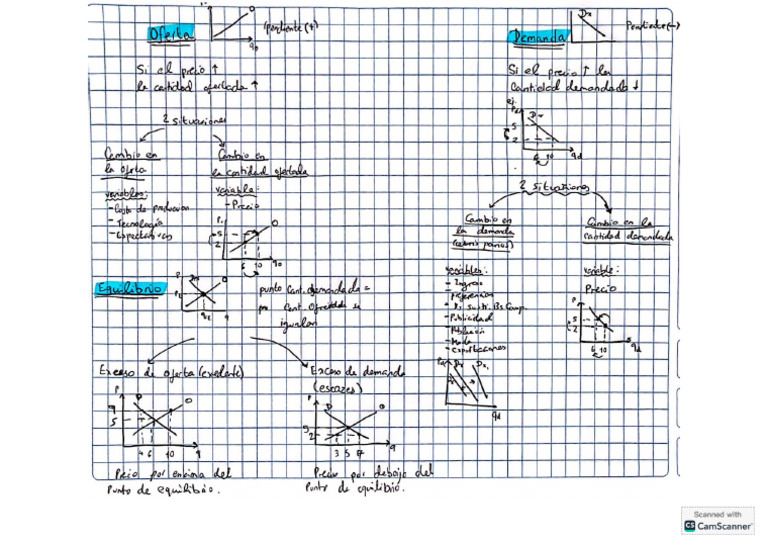 Oferta
Pendiente (+)
Si el precio ↑
la cantidad ofertada ↑
2 situaciones
Cambio en
la oferta
variables:
- Costo de producción
- Tecnología
- Expectativas
Cambio en
la cantidad ofertada
variable:
- Precio
5
2
6 10
Equilibrio
punto Cant. demandada =
Cant. Ofrecida se
igualan
Exceso de oferta (excedente)
P
D
O
5
4 6 10
q
Precio por encima del
Punto de equilibrio.
Exceso de demanda
(escasez)
D
O
2
3 5 7
q
Precio por debajo del
Punto de equilibrio.
Demanda
Dx
Pendiente (-)
Si el precio ↑ la
Cantidad demandada ↓
ej.
5
2
6 10
qd
2 situaciones
Cambio en
la demanda
variables:
- Ingreso
- Preferencias
- Publicidad
- Población
- Moda
- Expectaciones
qd
Cambio en la
Cantidad demandada
variable:
Precio
5
2
6 10
qd
Scanned with
CS CamScanner